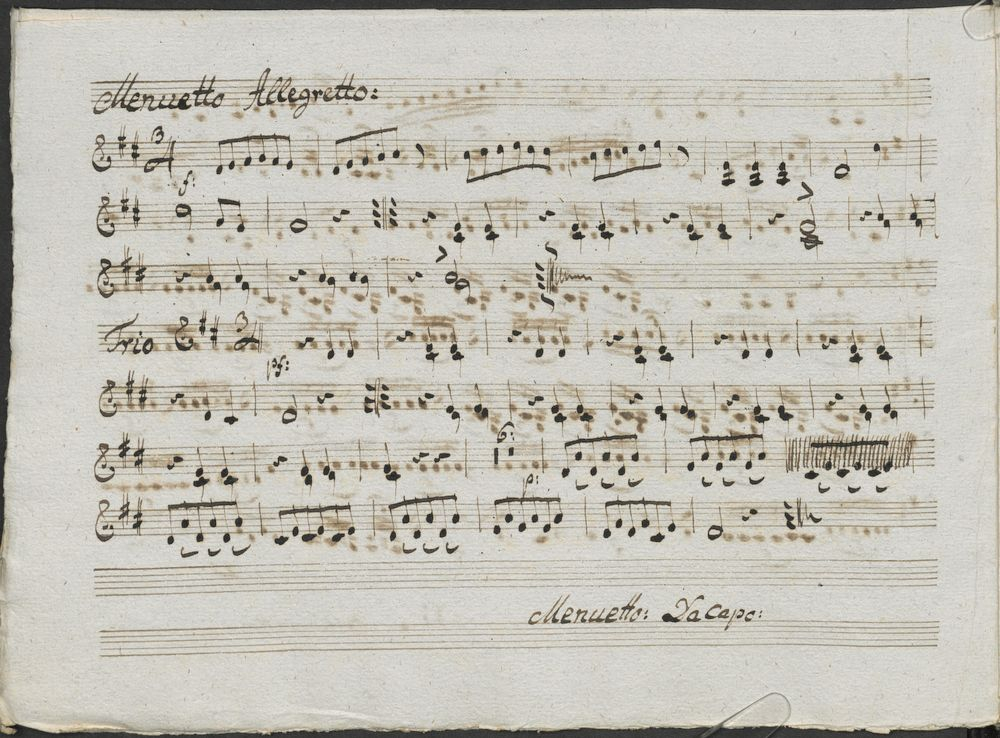 Menuetto Allegretto:
3/4
f:
Trio 3/4
pf:
6:
p:
Menuetto: Da Capo: